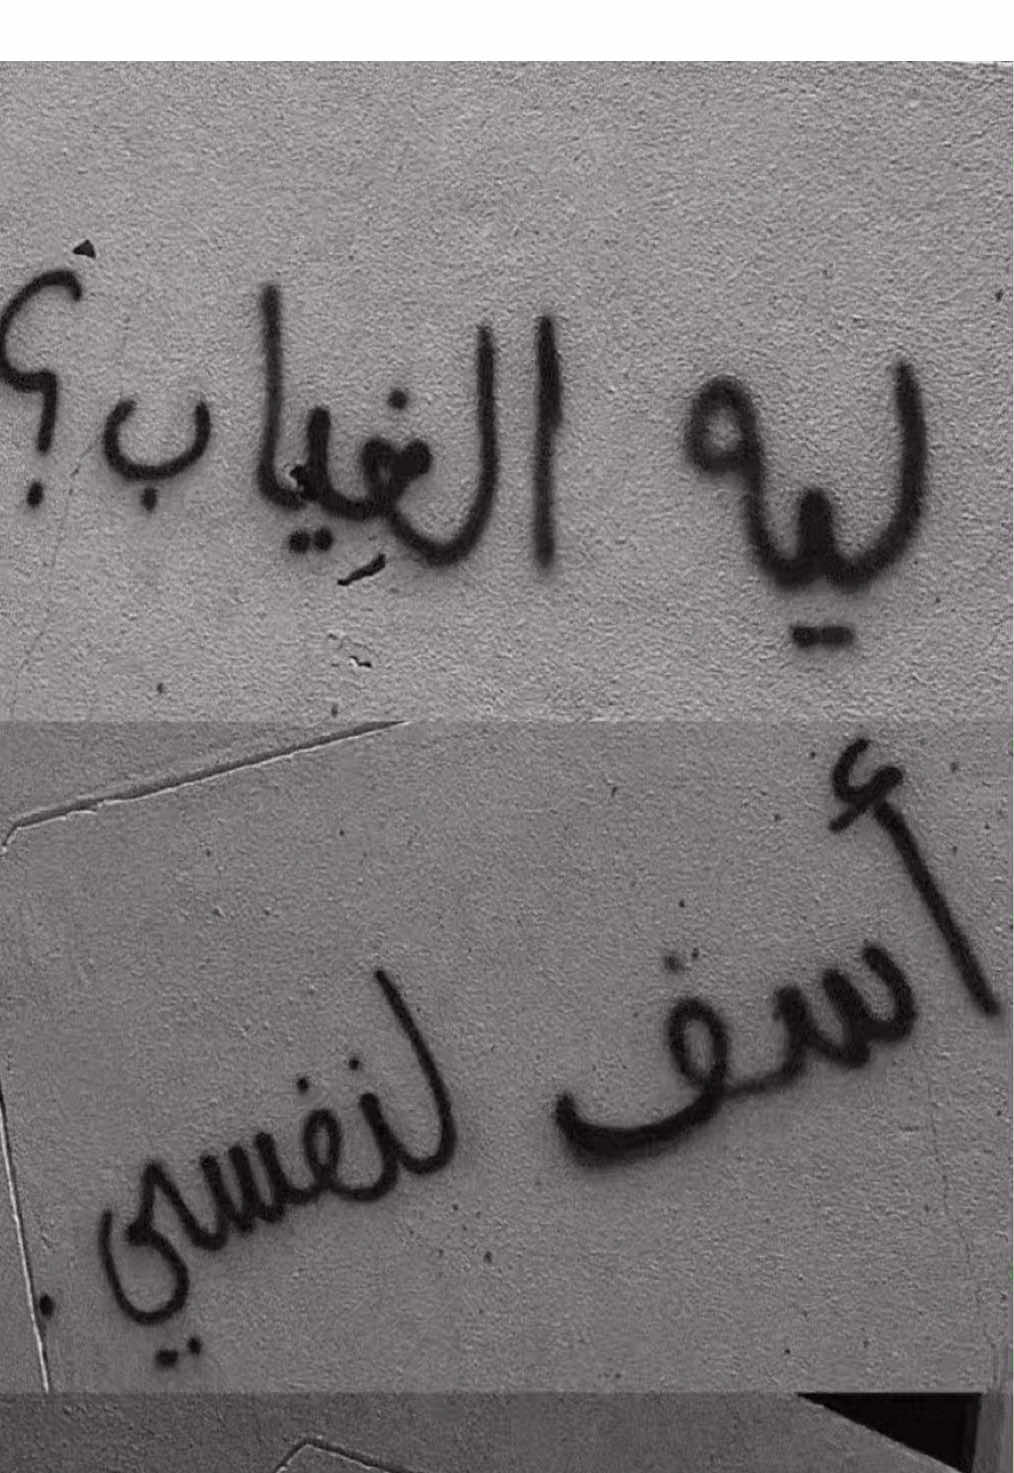 ليه الغياب؟
أسف لنفسي